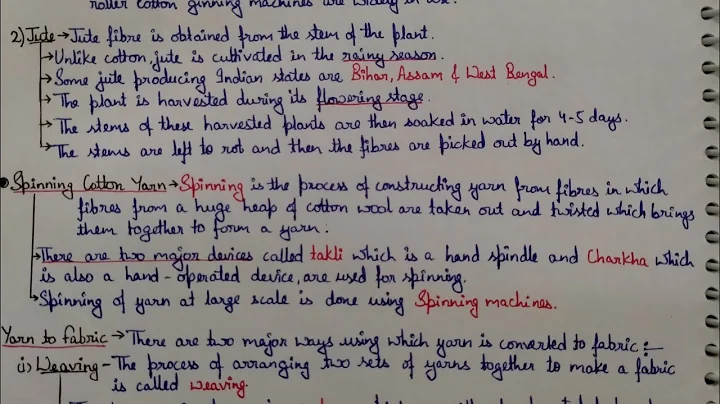 roller cotton ginning machines are widely in use.
2) Jute → Jute fibre is obtained from the stem of the plant.
→ Unlike cotton, jute is cultivated in the rainy season.
→ Some jute producing Indian states are Bihar, Assam & West Bengal.
→ The plant is harvested during its flowering stage.
→ The stems of these harvested plants are then soaked in water for 4-5 days.
→ The stems are left to rot and then the fibres are picked out by hand.
• Spinning Cotton Yarn → Spinning is the process of constructing yarn from fibres in which
fibres from a huge heap of cotton wool are taken out and twisted which brings
them together to form a yarn.
→ There are two major devices called takli which is a hand spindle and Charkha which
is also a hand-operated device, are used for spinning.
→ Spinning of yarn at large scale is done using Spinning machines.
Yarn to fabric → There are two major ways using which yarn is converted to fabric :—
i) Weaving - The process of arranging two sets of yarns together to make a fabric
is called weaving.